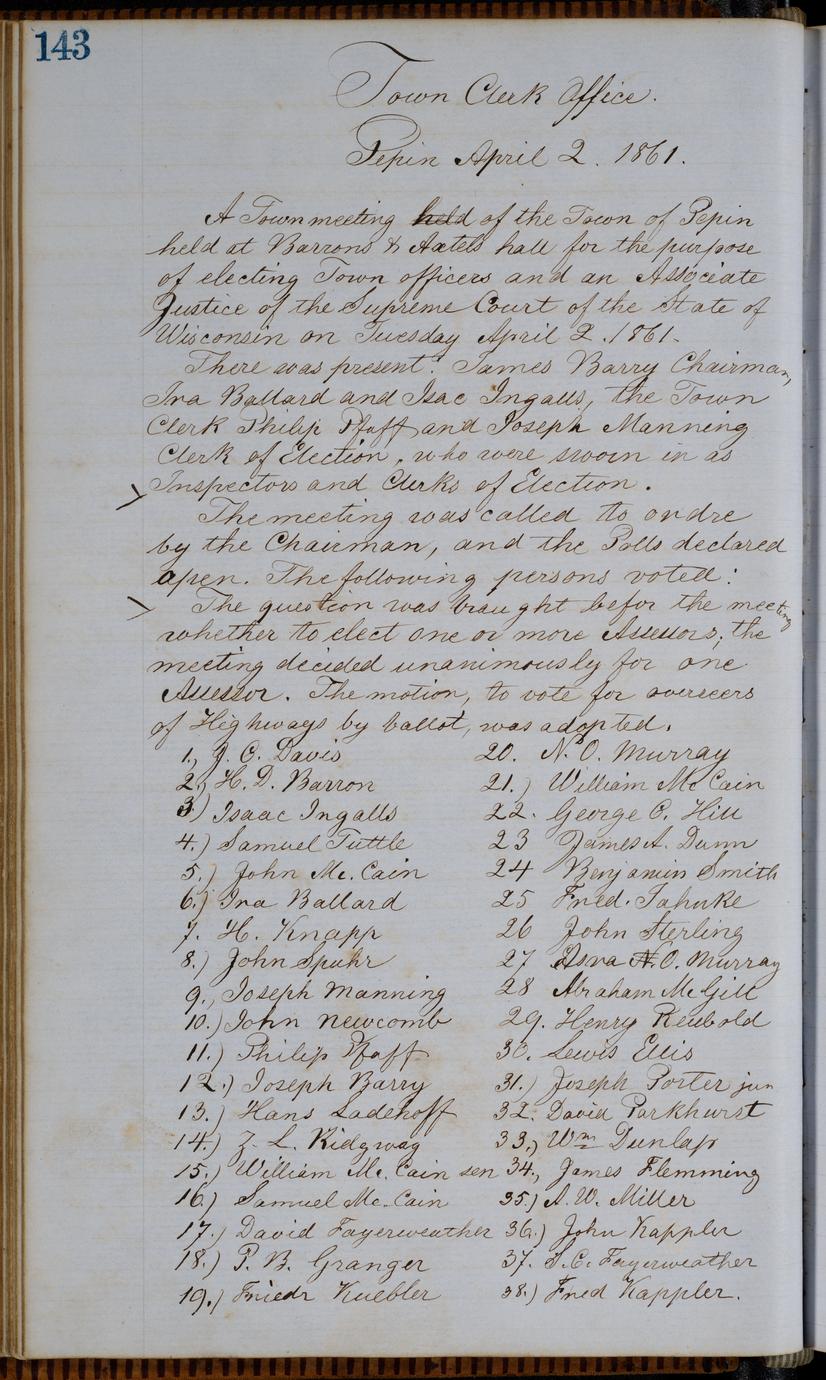 143
Town Clerk Office.
Pepin April 2. 1861.
A Town meeting held of the Town of Pepin
held at Barrons & Axtels hall for the purpose
of electing Town officers and an Associate
Justice of the Supreme Court of the State of
Wisconsin on Tuesday April 2. 1861.
There was present: James Barry Chairman,
Ira Ballard and Isac Ingalls, the Town
Clerk Philip Pfaff and Joseph Manning
Clerk of Election, who were sworn in as
Inspectors and Clerks of Election.
The meeting was called to ordre
by the Chairman, and the Polls declared
open. The following persons voted:
The question was braught befor the meeting
whether to elect one or more Assessors; the
meeting decided unanimously for one
Assessor. The motion, to vote for overseers
of Highways by ballot, was adopted.
1., J. C. Davis
2., H. D. Barron
3.) Isaac Ingalls
4.) Samuel Tuttle
5.) John Mc. Cain
6.) Ira Ballard
7. H. Knapp
8.) John Spuhr
9., Joseph Manning
10.) John Newcomb
11.) Philip Pfaff
12.) Joseph Barry
13.) Hans Ladehoff
14.) Z. L. Ridgway
15.) William Mc. Cain sen
16.) Samuel Mc. Cain
17.) David Fayerweather
18.) P. B. Granger
19.) Friedr Kuebler
20. N. O. Murray
21.) William Mc Cain
22. George C. Hill
23 James A. Dunn
24 Benjamin Smith
25 Fred. Tahuke
26 John Sterling
27 Asva N. O. Murray
28 Abraham McGill
29. Henry Reubold
30. Lewis Ellis
31.) Joseph Porter jun
32. David Parkhurst
33.) Wm Dunlap
34., James Flemming
35.) A. W. Miller
36.) John Kappler
37. S. C. Fayerweather
38.) Fred Kappler.